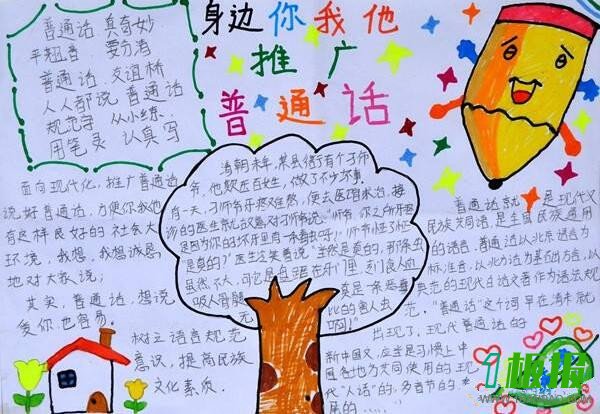 身边你我他
推广
普通话
普通话 真奇妙
平翘音 要分清
普通话 友谊桥
人人都说 普通话
规范字 从小练
用笔灵 认真写
面向现代化，推广普通话
说好普通话，方便你我他
有这样良好的 社会大
环境，我想，我想诚恳
地对大家说：
其实，普通话，想说
爱你也容易。
树立语言规范
意识，提高民族
文化素质。
清朝末年，某县衙有个刁师
爷，他欺压百姓，做了不少坏事。
有一天，刁师爷牙疼难忍，便去医
诊的医生就
是因为你的坏牙里有一条毒虫
是真的？”医生冷笑着说：“当然是真的，
虽然不大，可它是
吸人骨髓
的害人虫
啊！”
普通话就是现代汉
民族共同语，是全国民族通用
的语言。普通话以北京语音为
标准音，以北方话为基础方言，以
典范的现代白话文著作为语法规
范，“普通话”这个词早在清末就
出现了，现代普通话的
新中国文，应当是习惯上中
国各地方共同使用的现
代“人话”的，多音节的